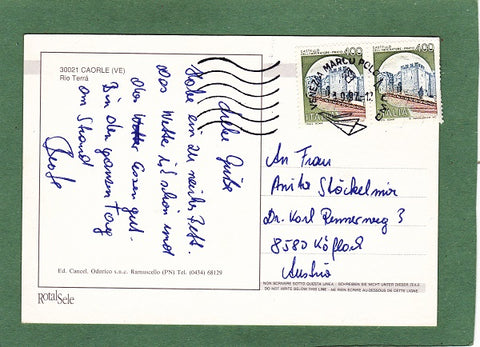 30021 CAORLE (VE)
Rio Terrà
Liebe Grüße
Habe ein zimmer
Das Wetter ist schön und
das Essen gut.
Bin den ganzen Tag
am Strand
Ed. Cancel. Odorico s.n.c. Ramuscello (PN) Tel. (0434) 68129
RotalSele
400
400
CASTELLO
DELL'IMPERATORE - PRATO
ITALIA
VENEZIA MARCO POLO
C.M.P.
An Frau
Anita Stöckelmir
Dr. Karl Rennerweg 3
8580 Köflach
Austria
NON SCRIVERE SOTTO QUESTA LINEA - SCHREIBEN SIE NICHT UNTER DIESER ZEILE
DO NOT WRITE BELOW THIS LINE - NE RIEN ECRIRE AU-DESSOUS DE CETTE LIGNE